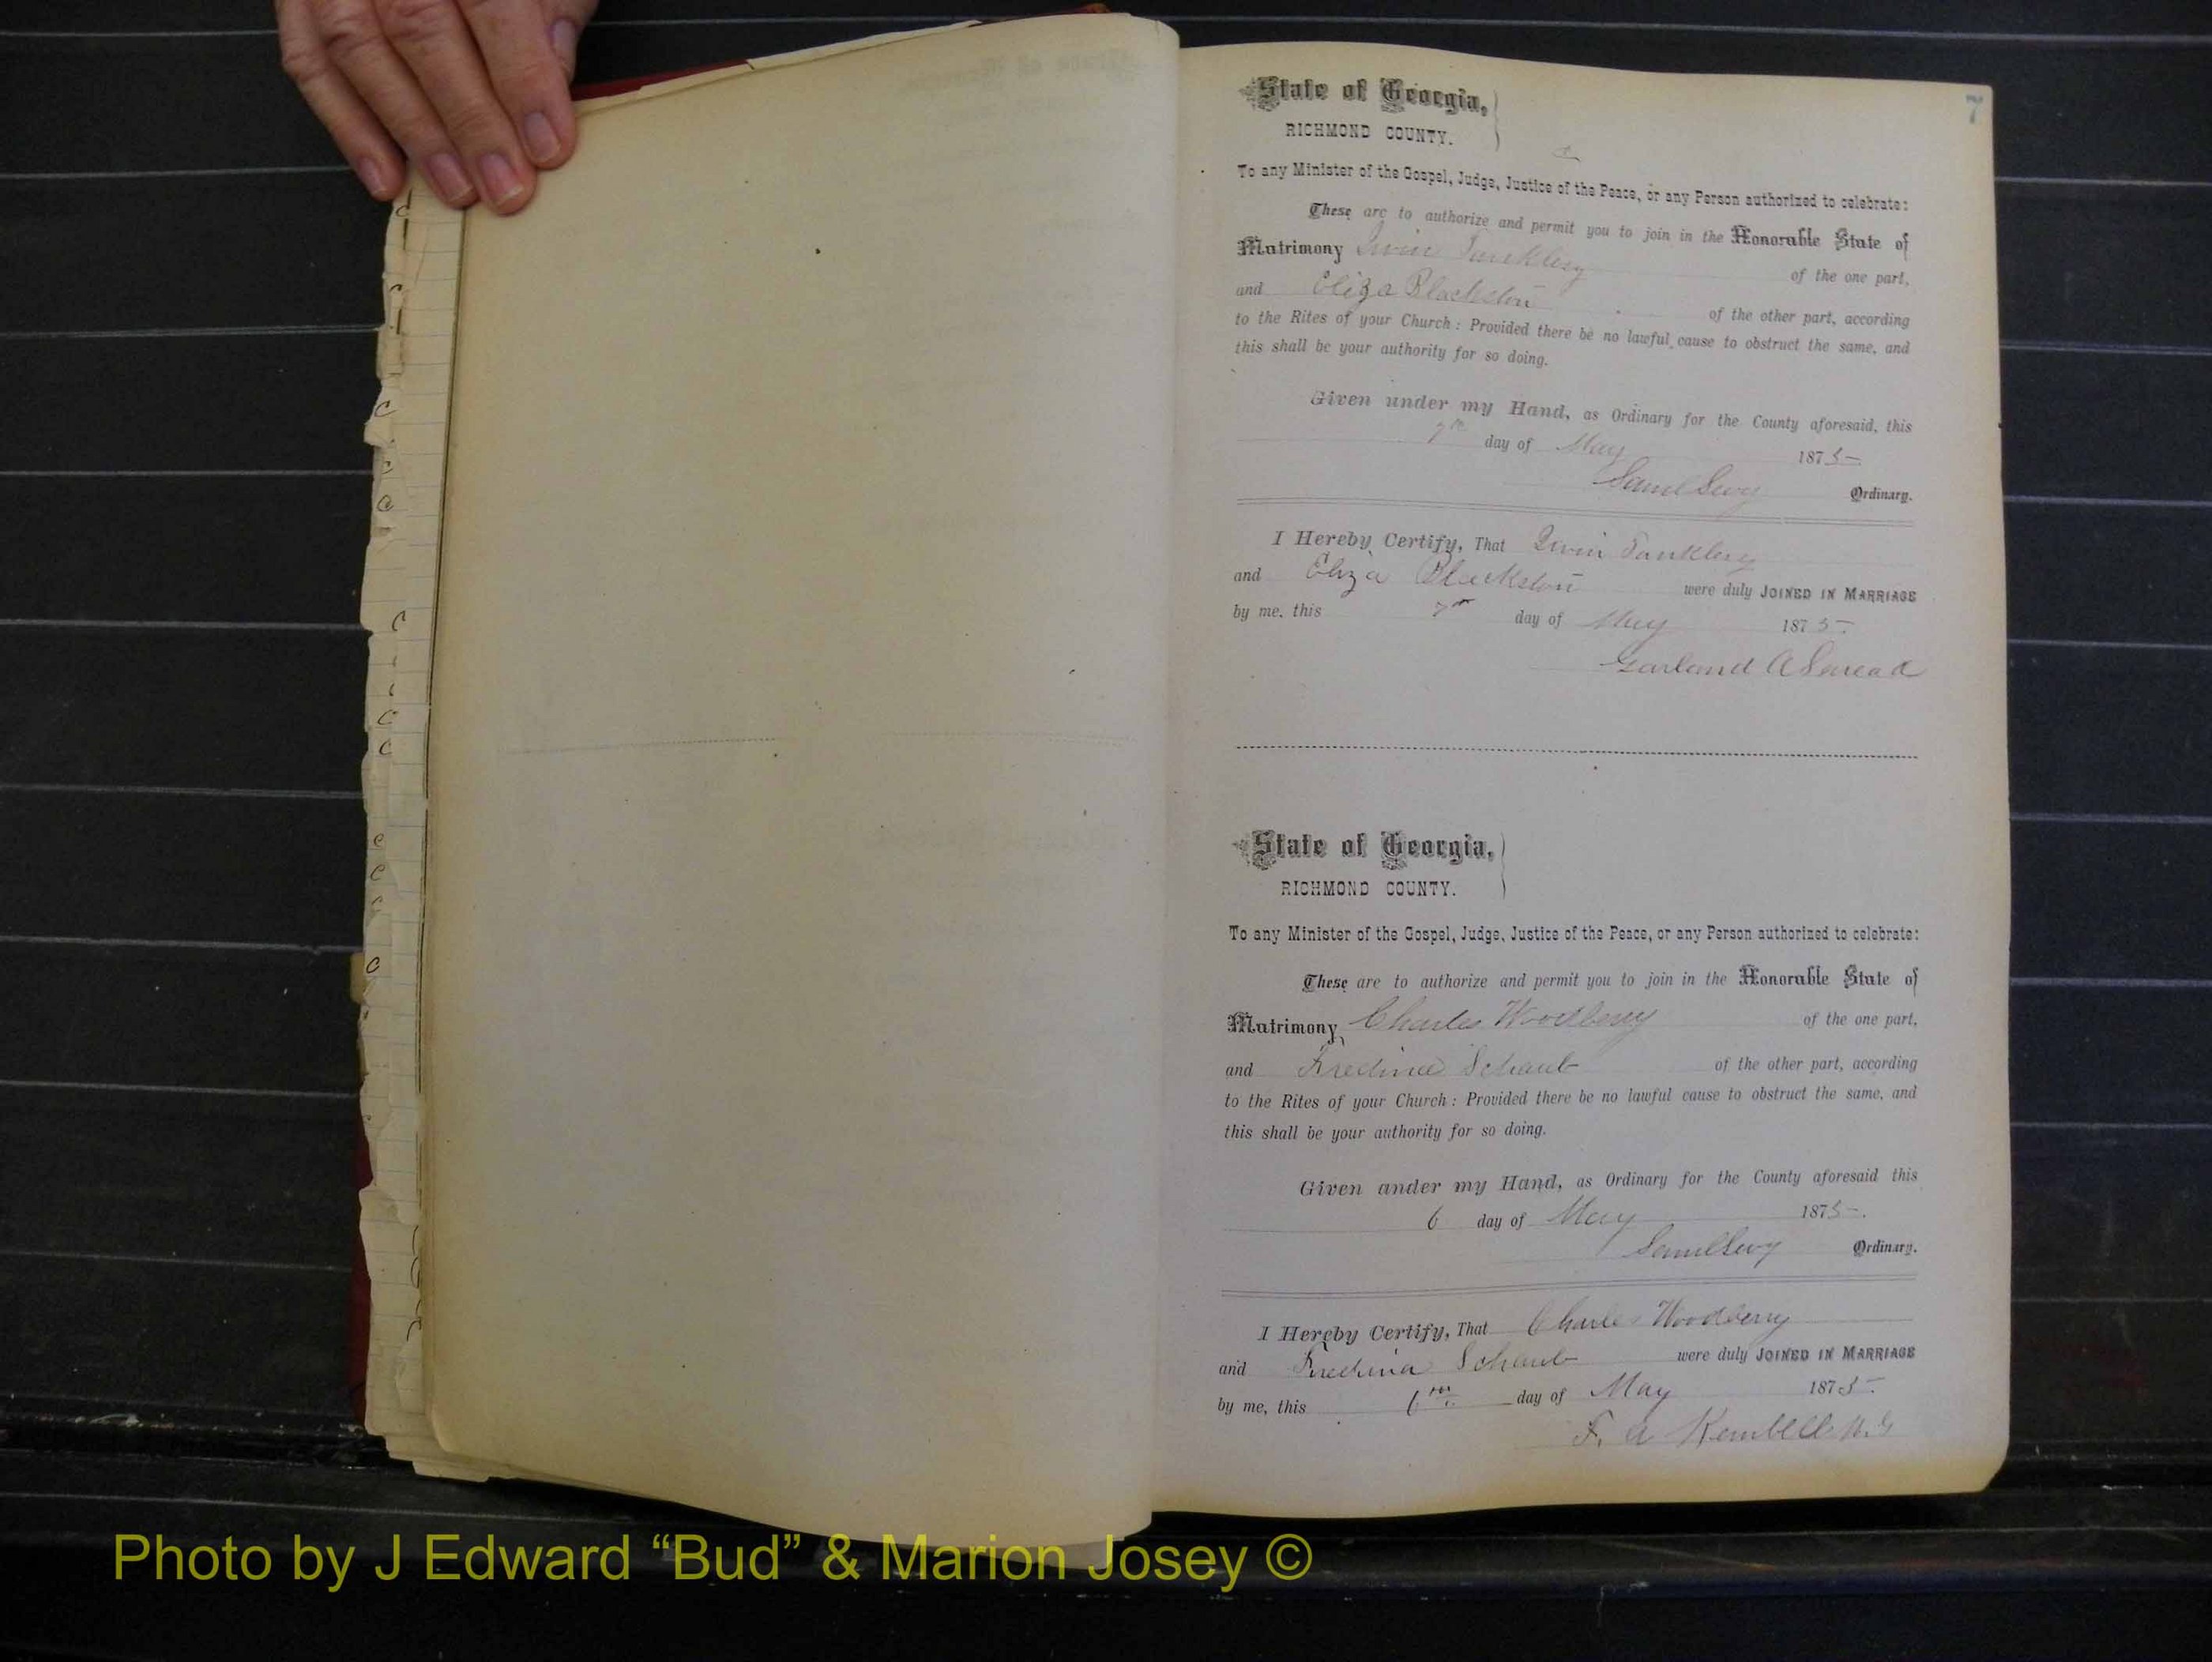 7
State of Georgia,
RICHMOND COUNTY.
To any Minister of the Gospel, Judge, Justice of the Peace, or any Person authorized to celebrate:
These are to authorize and permit you to join in the Honorable State of
Matrimony of the one part,
and Eliza Blackston of the other part, according
to the Rites of your Church: Provided there be no lawful cause to obstruct the same, and
this shall be your authority for so doing.
Given under my Hand, as Ordinary for the County aforesaid, this
7th day of May 1875
Saml Levy Ordinary.
I Hereby Certify, That
and Eliza Blackston were duly JOINED IN MARRIAGE
by me, this 7th day of May 1875.
Garland A Snead
State of Georgia,
RICHMOND COUNTY.
To any Minister of the Gospel, Judge, Justice of the Peace, or any Person authorized to celebrate:
These are to authorize and permit you to join in the Honorable State of
Matrimony Charles Woodberry of the one part,
and Fredina Schaub of the other part, according
to the Rites of your Church: Provided there be no lawful cause to obstruct the same, and
this shall be your authority for so doing.
Given under my Hand, as Ordinary for the County aforesaid this
6 day of May 1875.
Saml Levy Ordinary.
I Hereby Certify, That Charles Woodberry
and Fredina Schaub were duly JOINED IN MARRIAGE
by me, this 6th day of May 1875.
F. A Kimbell M.G
Photo by J Edward “Bud” & Marion Josey ©